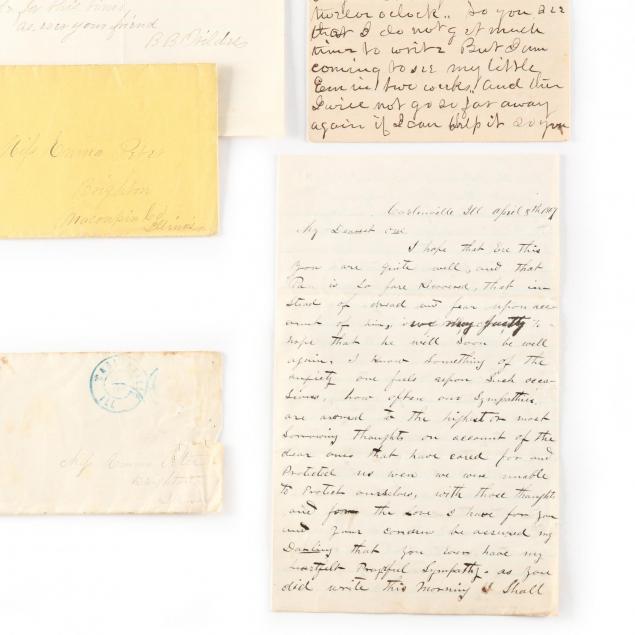 as ever your friend
B B Wildes
twelve o clock.. So you see
that I do not get much
time to write But I am
coming to see my little
Em in two weeks.. and then
I will not go so far away
again if I can help it so you
Miss Emma
Brighton
Macoupin Co
Illinois
Carlinville Ill April 8th
My Dearest
I hope that Ere this
you are quite well, and that
Pa is so fare Recovered, that in
stead of dread and fear upon acc
ount of him, we may justly
hope that he will soon be well
again, I know something of the
anxiety one feels upon Such occa
sions, how often our Sympathies
are aroused to the highest or most
Sorrowing thoughts on account of the
dear ones that have cared for and
Protected us wen we were unable
to Protect ourselves, with those thoughts
and from the Love I have for you
and your concern be assured my
Darling that you ever have my
heartfelt Prayful Sympathy. as you
did write this Morning I Shall
Miss Emma